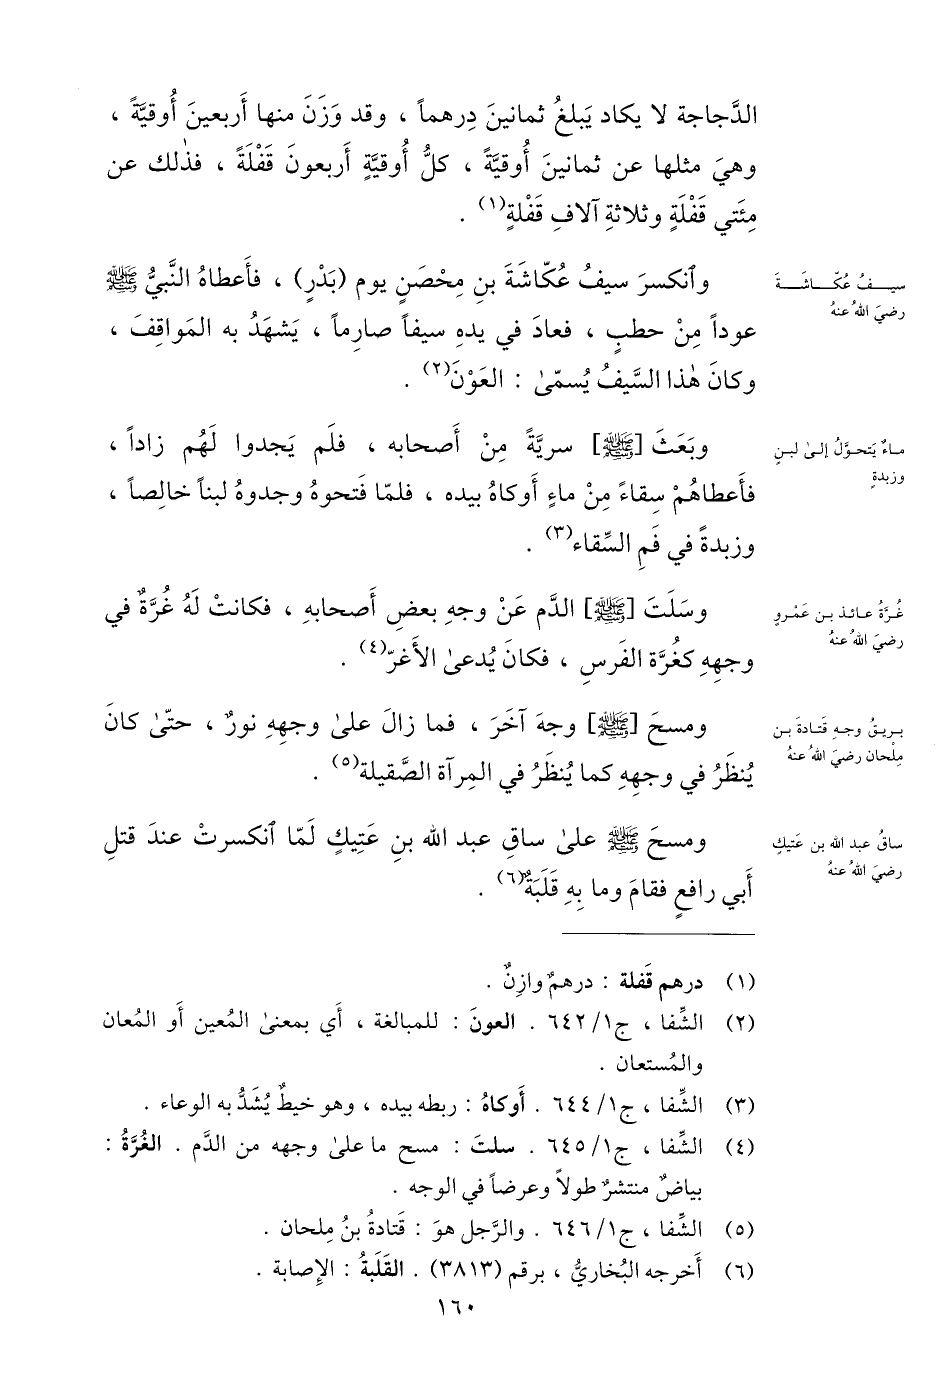 الدَّجاجة لا يكاد يَبلغُ ثمانينَ دِرهماً ، وقد وَزَنَ منها أَربعينَ أُوقيَّةً ،
وهيَ مثلها عن ثمانينَ أُوقيَّةً ، كلُّ أُوقيَّةٍ أَربعونَ قَفْلَةً ، فذٰلك عن
مِئَتي قَفْلَةٍ وثلاثةِ آلافِ قَفْلةٍ(١) .
سيـفُ عُكّـاشَـةَ
رضيَ اللهُ عنهُ
وٱنكسرَ سيفُ عُكّاشَةَ بنِ مِحْصَنٍ يوم (بَدْرٍ) ، فأَعطاهُ النَّبيُّ ﷺ
عوداً مِنْ حطبٍ ، فعادَ في يدهِ سيفاً صارِماً ، يَشهَدُ به المَواقِفَ ،
وكانَ هٰذا السَّيفُ يُسمّىٰ : العَوْنَ(٢) .
ماءٌ يَتحوَّلُ إلىٰ لبنٍ
وزبدةٍ
وبَعَثَ [ﷺ] سريَّةً مِنْ أَصحابه ، فلَم يَجدوا لَهُم زاداً ،
فأَعطاهُمْ سِقاءً مِنْ ماءٍ أَوكاهُ بيده ، فلمّا فَتحوهُ وجدوهُ لبناً خالِصاً ،
وزبدةً في فَمِ السِّقاء(٣) .
غُرَّةُ عائذ بن عَمْروٍ
رضيَ اللهُ عنهُ
وسَلَتَ [ﷺ] الدَّم عَنْ وجهِ بعضِ أَصحابهِ ، فكانتْ لَهُ غُرَّةٌ في
وجههِ كغُرَّة الفَرسِ ، فكانَ يُدعىٰ الأَغرّ(٤) .
بريقُ وجهِ قَتادةَ بن
مِلْحان رضيَ اللهُ عنهُ
ومسحَ [ﷺ] وجهَ آخَرَ ، فما زالَ علىٰ وجههِ نورٌ ، حتّىٰ كانَ
يُنظَرُ في وجههِ كما يُنظَرُ في المِرآة الصَّقيلة(٥) .
ساقُ عبد الله بن عَتيكٍ
رضيَ اللهُ عنهُ
ومسحَ ﷺ علىٰ ساقِ عبد الله بنِ عَتِيكٍ لَمّا ٱنكسرتْ عندَ قتلِ
أَبي رافعٍ فقامَ وما بِهِ قَلَبَةٌ(٦) .
(١) درهم قَفلة : درهمٌ وازِنٌ .
(٢) الشِّفا ، ج١/ ٦٤٢ . العونَ : للمبالغة ، أَي بمعنىٰ المُعين أَو المُعان
والمُستعان .
(٣) الشِّفا ، ج١/ ٦٤٤ . أَوكاهُ : ربطه بيده ، وهو خيطٌ يُشَدُّ به الوعاء .
(٤) الشِّفا ، ج١/ ٦٤٥ . سلتَ : مسح ما علىٰ وجهه من الدَّم . الغُرَّةُ :
بياضٌ منتشرٌ طولاً وعرضاً في الوجه .
(٥) الشِّفا ، ج١/ ٦٤٦ . والرَّجل هوَ : قَتادةُ بنُ مِلحان .
(٦) أَخرجه البُخاريُّ ، برقم (٣٨١٣) . القَلَبَةُ : الإِصابة .
١٦٠